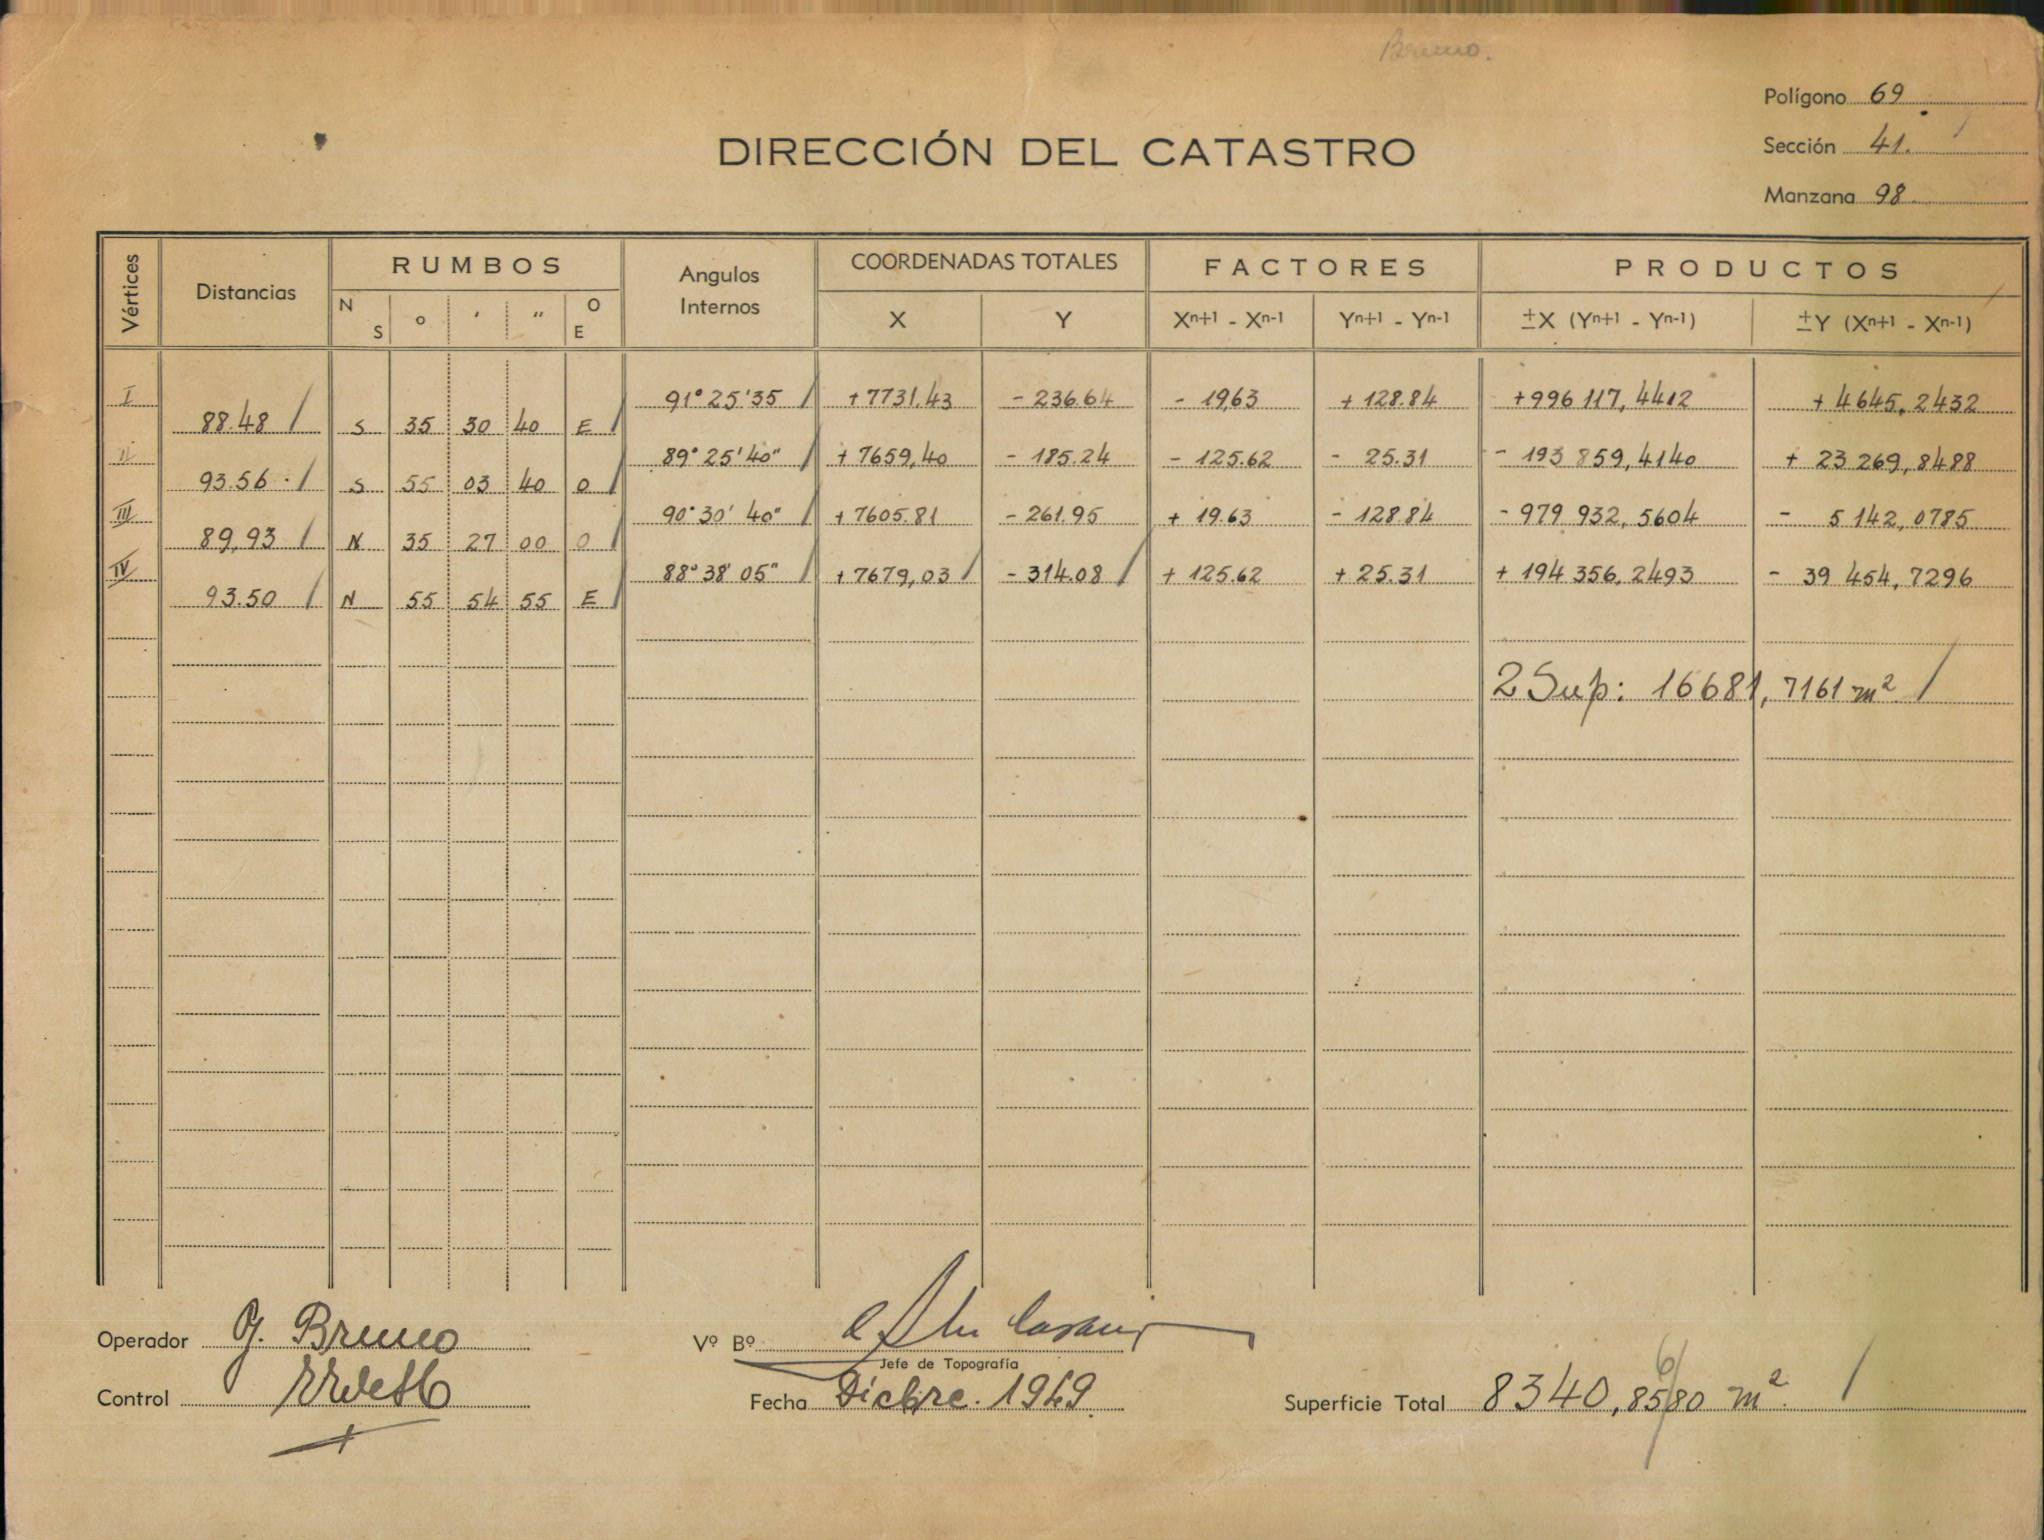 Bruno.
Polígono 69
DIRECCIÓN DEL CATASTRO
Sección 41.
Manzana 98.
Vértices Distancias RUMBOS Angulos Internos COORDENADAS TOTALES FACTORES PRODUCTOS
N S o ' " O E X Y Xn+1 - Xn-1 Yn+1 - Yn-1 ±X (Yn+1 - Yn-1) ±Y (Xn+1 - Xn-1)
I 91° 25' 35 + 7731.43 - 236.64 - 19,63 + 128.84 + 996 117,4412 + 4645,2432
88.48 S 35 30 40 E
II 89° 25' 40" + 7659,40 - 185.24 - 125.62 - 25.31 - 193 859,4140 + 23 269,8488
93.56 S 55 03 40 O
III 90° 30' 40" + 7605.81 - 261.95 + 19.63 - 128 84 - 979 932,5604 - 5 142,0785
89,93 N 35 27 00 O
IV 88° 38' 05" + 7679,03 - 314.08 + 125.62 + 25.31 + 194 356,2493 - 39 454,7296
93.50 N 55 54 55 E
2 Sup: 16681,7161 m²
Operador G. Bruno Vº Bº
Jefe de Topografía
Control Fecha Dicbre. 1949. Superficie Total 8340,8580 m²
6